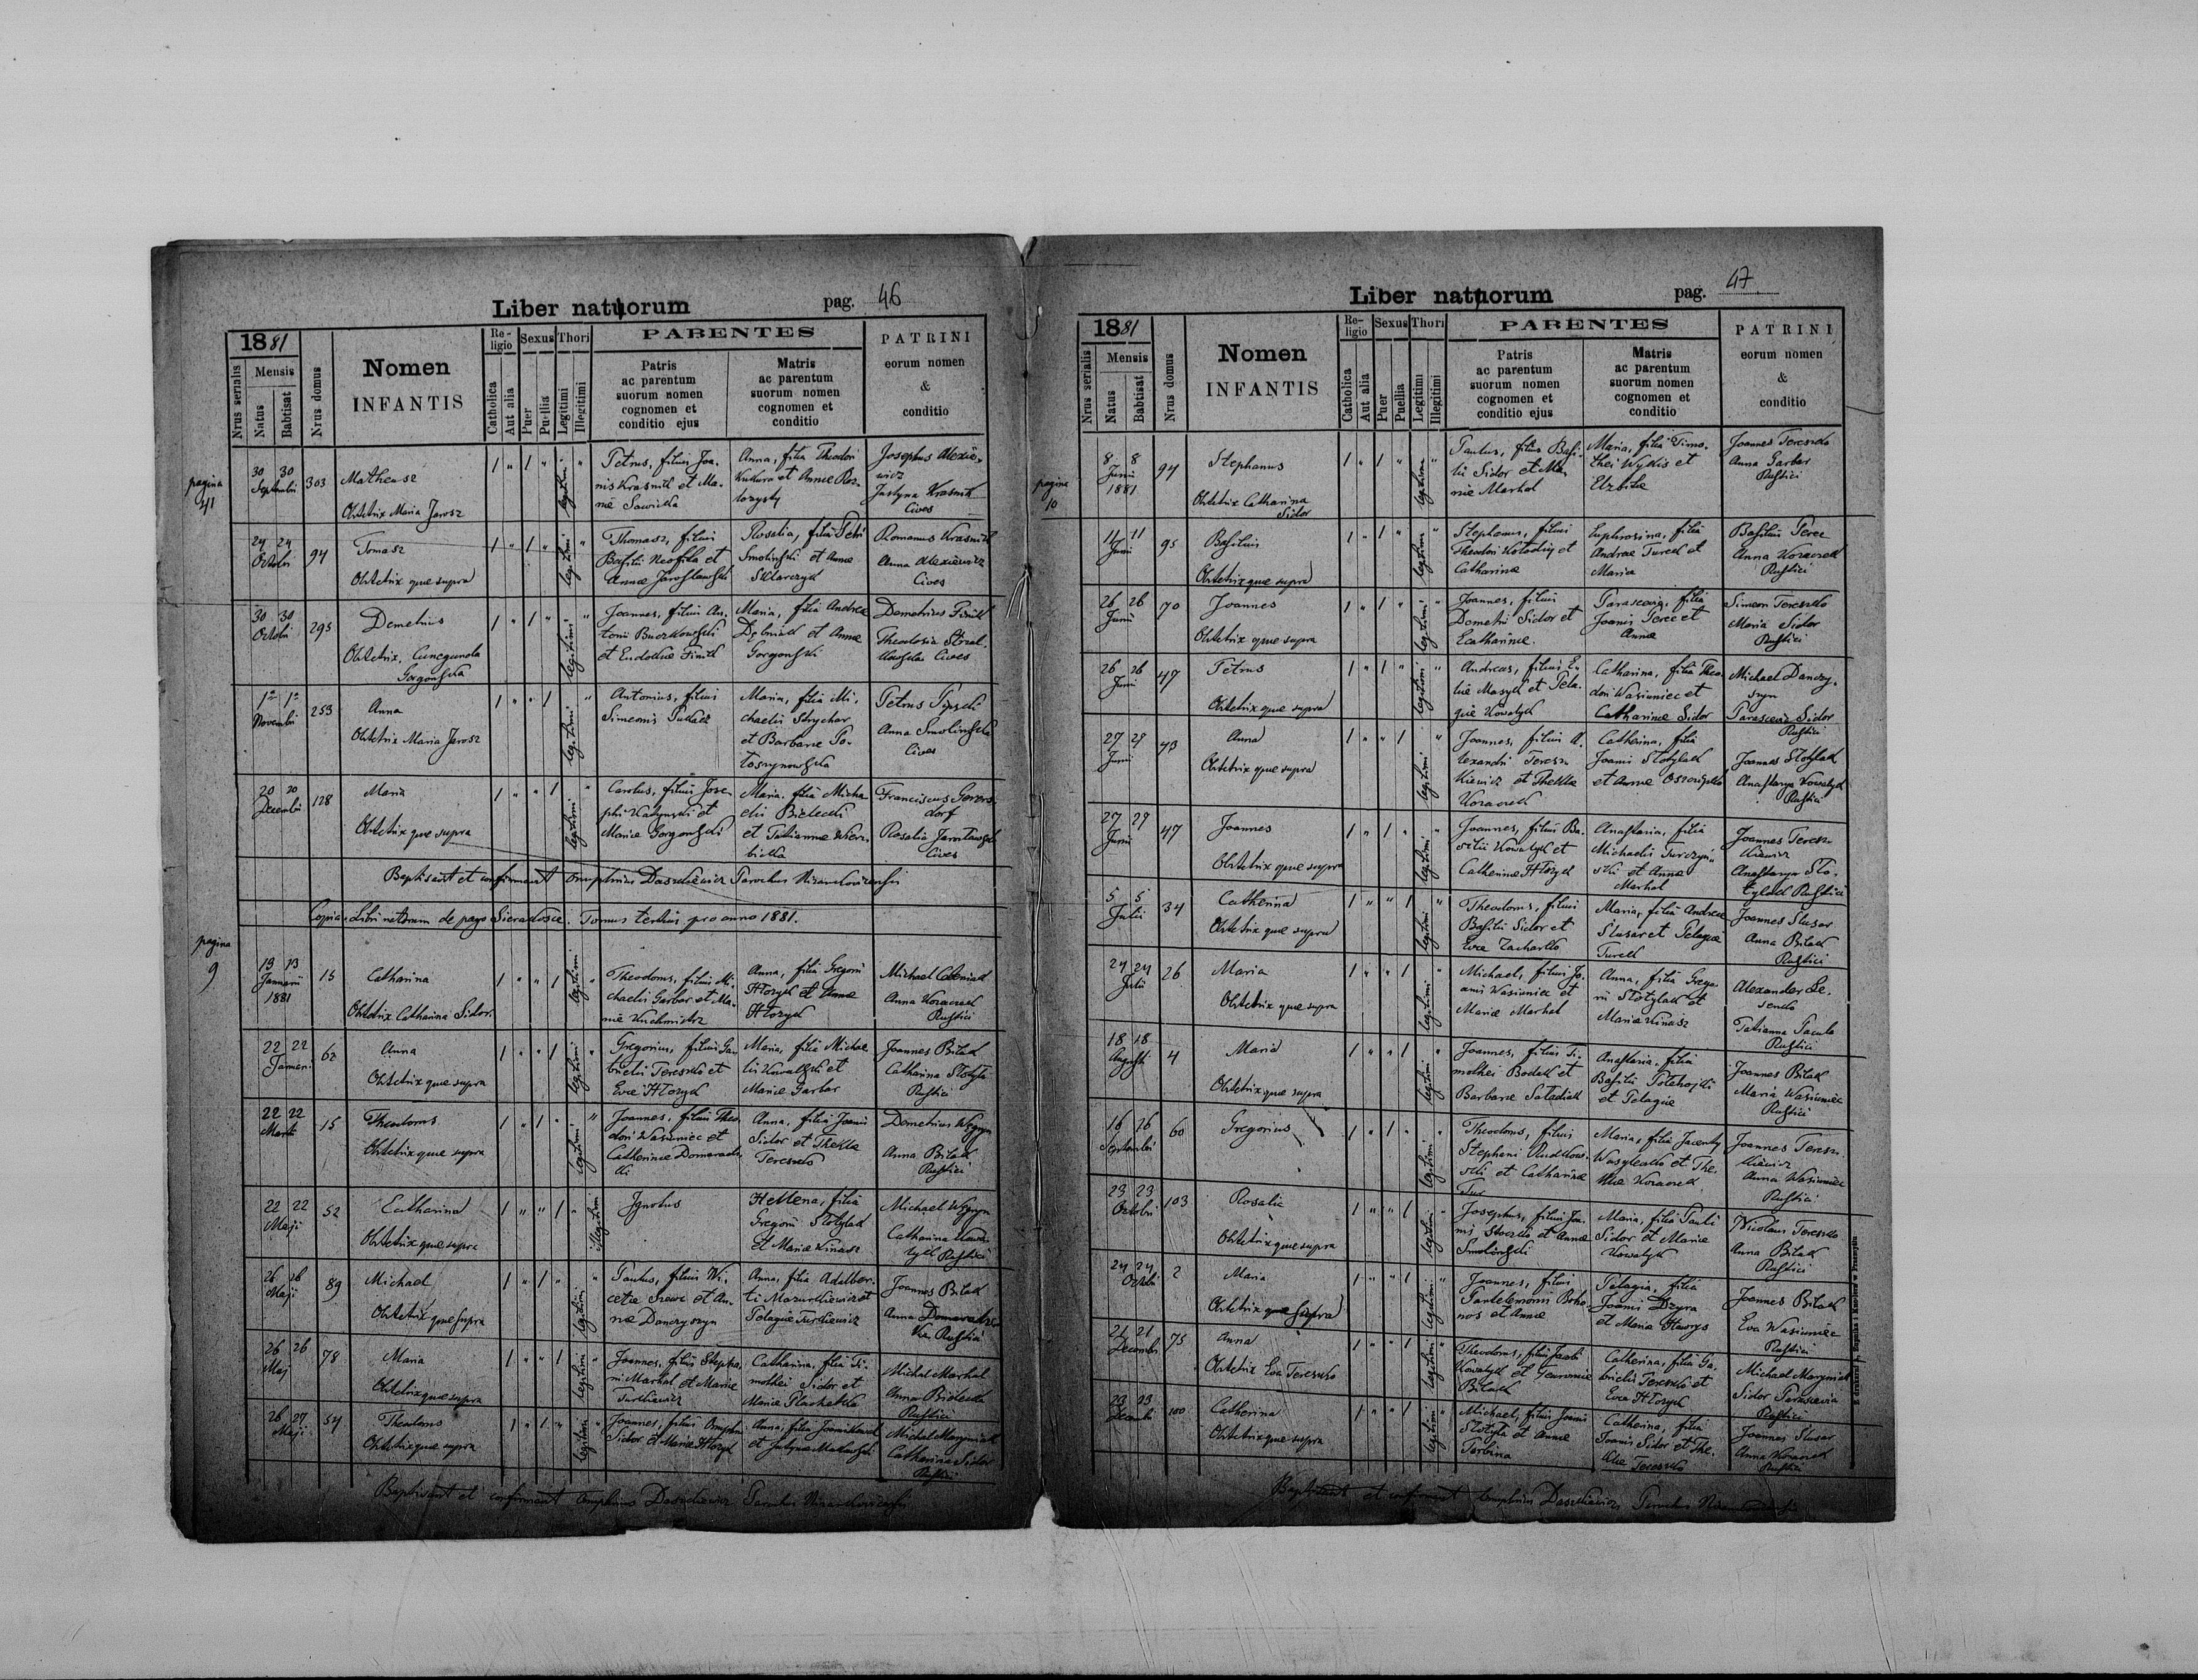 Liber natuorum pag. 46
1881
Nrus serialis
Mensis
Natus
Babtisat
Nrus domus
Nomen
INFANTIS
Re-
ligio
Catholica
Aut alia
Sexus
Puer
Puellia
Thori
Legitimi
Illegitimi
PARENTES
Patris
ac parentum
suorum nomen
cognomen et
conditio ejus
Matris
ac parentum
suorum nomen
cognomen et
conditio
PATRINI
eorum nomen
&
conditio
pagina
41
30 30
Septembris
303
Matheusz
Obstetrix Maria Jarosz
legitimi
Petrus, filius Joa-
nis Krasnik et Ma-
riæ Sawicka
Anna, filia Theodori
Kukura et Annæ
Josephus Alexie-
wicz
Justyna Krasnik
Cives
24 24
Octobris
94
Tomasz
Obstetrix quæ supra
legitimi
Thomasz, filius
Basilii Neofita et
Annæ Jaroslawski
Rosalia, filia Petri
Smolinski et Annæ
Sklarczyk
Romanus Krasnik
Anna Alexiewicz
Cives
30 30
Octobris
295
Demetrius
Obstetrix, Cunegunda
Gorgonska
legitimi
Joannes, filius An-
tonii Buczkowski
et Eudokiæ Finik
Maria, filia Andreæ
Dębniak et Annæ
Gorgonski
Demetrius Finik
Theodosia
Cives
1 1
Novembris
253
Anna
Obstetrix Maria Jarosz
legitimi
Antonius, filius
Simeonis
Maria, filia Mi-
chaelis Strychar
et Barbaræ
Petrus
Anna Smolinska
Cives
20 20
Decembris
128
Maria
Obstetrix quæ supra
legitimi
Carolus, filius Jose-
phi et
Mariæ Gorgonski
Maria, filia Micha
elis Bielecki
et Tatiannæ Wierz-
bicka
Franciscus
dorf
Rosalia
Cives
Baptisavit et confirmavit Onuphrius Daszkiewicz Parochus Nizankovicensis
Copia Libri natorum de pago Sierakosce. Tomus tertius pro anno 1881.
pagina
9
13 13
Januarii
1881
15
Catharina
Obstetrix Catharina Sidor
legitimi
Theodorus, filius Mi-
chaelis Garbar et Ma-
riæ Kuchmistrz
Anna, filia Gregorii
Hłozyk et Annæ
Hłozyk
Michael
Anna Kozaczek
Rustici
22 22
Januarii
62
Anna
Obstetrix quæ supra
legitimi
Gregorius, filius Ga-
brielis Tereszko et
Evæ Hłozyk
Maria, filia Michae
lis Kowalski et
Mariæ Garbar
Joannes Bilak
Catharina Stotyła
Rustici
22 22
Martii
15
Theodorus
Obstetrix quæ supra
legitimi
Joannes, filius Theo-
dori Wasiuniec et
Catherinæ
Anna, filia Joannis
Sidor et Theklæ
Tereszko
Demetrius
Anna Bilak
Rustici
22 22
Maji
52
Catharina
Obstetrix quæ supra
illegitimi
Ignotus
Hellena, filia
Gregorii Stotylak
et Mariæ Kinasz
Michael
Catharina Kowa-
lyk Rustici
26 26
Maji
89
Michael
Obstetrix quæ supra
legitimi
Paulus, filius Ni-
cetæ et An-
næ Danczyszyn
Anna, filia Adalber-
ti Mazurkiewicz et
Pelagiæ Turkiewicz
Joannes Bilak
Anna
Rustici
26 26
Maj
78
Maria
Obstetrix quæ supra
legitimi
Joannes, filius Stepha-
ni Marhal et Mariæ
Turkiewicz
Catharina, filia Ti-
mothei Sidor et
Mariæ
Michal Marhal
Anna
Rustici
26 27
Maji
54
Theodorus
Obstetrix quæ supra
legitimi
Joannes, filius Onuphrii
Sidor et Mariæ Hłozyk
Anna, filia Joannis
et Justynæ
Michal Maryniak
Catherina Sidor
Rustici
Baptisavit et confirmavit Onuphrius Daszkiewicz Parochus Nizankovicensis
Liber natuorum pag. 47
1881
Nrus serialis
Mensis
Natus
Babtisat
Nrus domus
Nomen
INFANTIS
Re-
ligio
Catholica
Aut alia
Sexus
Puer
Puellia
Thori
Legitimi
Illegitimi
PARENTES
Patris
ac parentum
suorum nomen
cognomen et
conditio ejus
Matris
ac parentum
suorum nomen
cognomen et
conditio
PATRINI
eorum nomen
&
conditio
pagina
10
8 8
Junii
1881
94
Stephanus
Obstetrix Catharina
Sidor
legitimi
Paulus, filius Basi-
lii Sidor et Ma-
riæ Marhal
Maria, filia Timo-
thei et
Elzbitæ
Joannes Tereszko
Anna Garbar
Rustici
11 11
Junii
95
Basilius
Obstetrix quæ supra
legitimi
Stephanus, filius
Theodori et
Catharinæ
Euphrosina, filia
Andreæ Turek et
Maria
Basilius Perec
Anna Kozaczek
Rustici
26 26
Junii
70
Joannes
Obstetrix quæ supra
legitimi
Joannes, filius
Demetri Sidor et
Ecatharinæ
Parascevia, filia
Joannis Perec et
Annæ
Simeon Tereszko
Maria Sidor
Rustici
26 26
Junii
47
Petrus
Obstetrix quæ supra
legitimi
Andreas, filius E-
liæ et Pela-
giæ Kowalyk
Catharina, filia Theo-
dori Wasiuniec et
Catharinæ Sidor
Michael Danczy-
szyn
Parascevia Sidor
Rustici
27 29
Junii
43
Anna
Obstetrix quæ supra
legitimi
Joannes, filius A-
lexandri Teresz-
kiewicz et Theklæ
Kozaczek
Catherina, filia
Joannis Stotylak
et Annæ
Joannes Stotylak
Anastazya Kowalyk
Rustici
27 29
Junii
47
Joannes
Obstetrix quæ supra
legitimi
Joannes, filius Ba-
silii Kowalyk et
Catherinæ Hłozyk
Anastasia, filia
Michaelis Turczyń-
ski et Annæ
Marhal
Joannes Teresz-
kiewicz
Anastazya Sto-
tylak Rustici
5 5
Julii
34
Catherina
Obstetrix quæ supra
legitimi
Theodorus, filius
Basilii Sidor et
Evæ Zacharko
Maria, filia Andreæ
Slusar et Pelagiæ
Turek
Joannes Slusar
Anna Bilak
Rustici
24 24
Julii
26
Maria
Obstetrix quæ supra
legitimi
Michael, filius Jo-
annis Wasiuniec et
Mariæ Marhal
Anna, filia Grego-
rii Stotylak et
Mariæ Kinasz
Alexander Se-
senko
Tatianna
Rustici
18 18
Augusti
4
Maria
Obstetrix quæ supra
legitimi
Joannes, filius Ti-
mothei Bodak et
Barbaræ
Anastasia, filia
Basilii
et Pelagiæ
Joannes Bilak
Maria Wasiuniec
Rustici
16 16
Septembris
60
Gregorius
legitimi
Theodorus, filius
Stephani Rudkow-
ski et Catharinæ
Maria, filia Jacenty
et The-
klæ Kozaczek
Joannes Teresz-
kiewicz
Anna Wasiuniec
Rustici
23 23
Octobris
103
Rosalia
Obstetrix quæ supra
legitimi
Josephus, filius Joa-
nis et Annæ
Smolinski
Maria, filia Pauli
Sidor et Mariæ
Kowalyk
Nicolaus Tereszko
Anna Bilak
Rustici
24 24
Octobris
2
Maria
Obstetrix quæ supra
legitimi
Joannes, filius
Pantelemonis Boho-
nos et Annæ
Pelagia, filia
Joannis Dzyra
et Mariæ Hawrys
Joannes Bilak
Eva Wasiuniec
Rustici
21 21
Decembris
75
Anna
Obstetrix Eva Tereszko
legitimi
Theodorus, filius Jacobi
Kowalyk et
Bilak
Catherina, filia Ga-
brielis Tereszko et
Evæ Hłozyk
Michael Maryniak
Sidor Parascevia
Rustici
23 23
Decembris
100
Catherina
Obstetrix quæ supra
legitimi
Michael, filius Joannis
Stotyła et Annæ
Catherina, filia
Joannis Sidor et The-
klæ Tereszko
Joannes Slusar
Anna Kozaczek
Rustici
Baptisavit et confirmavit Onuphrius Daszkiewicz Parochus